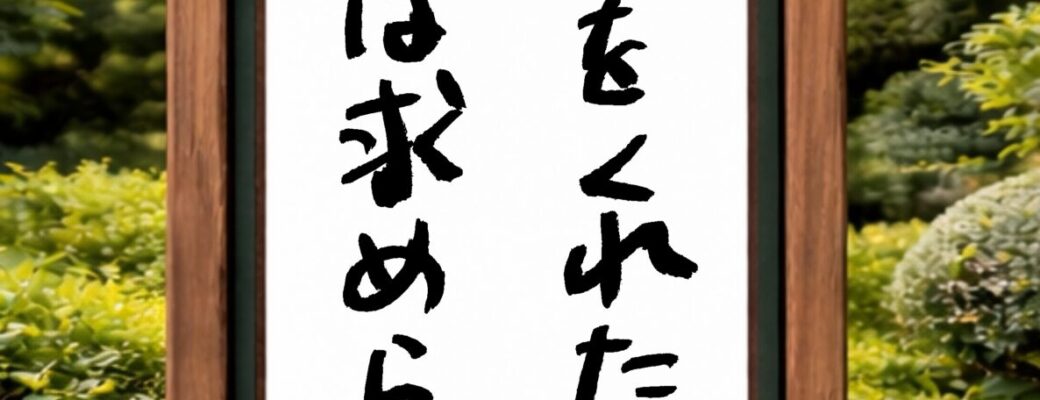 をくれた
は求めら